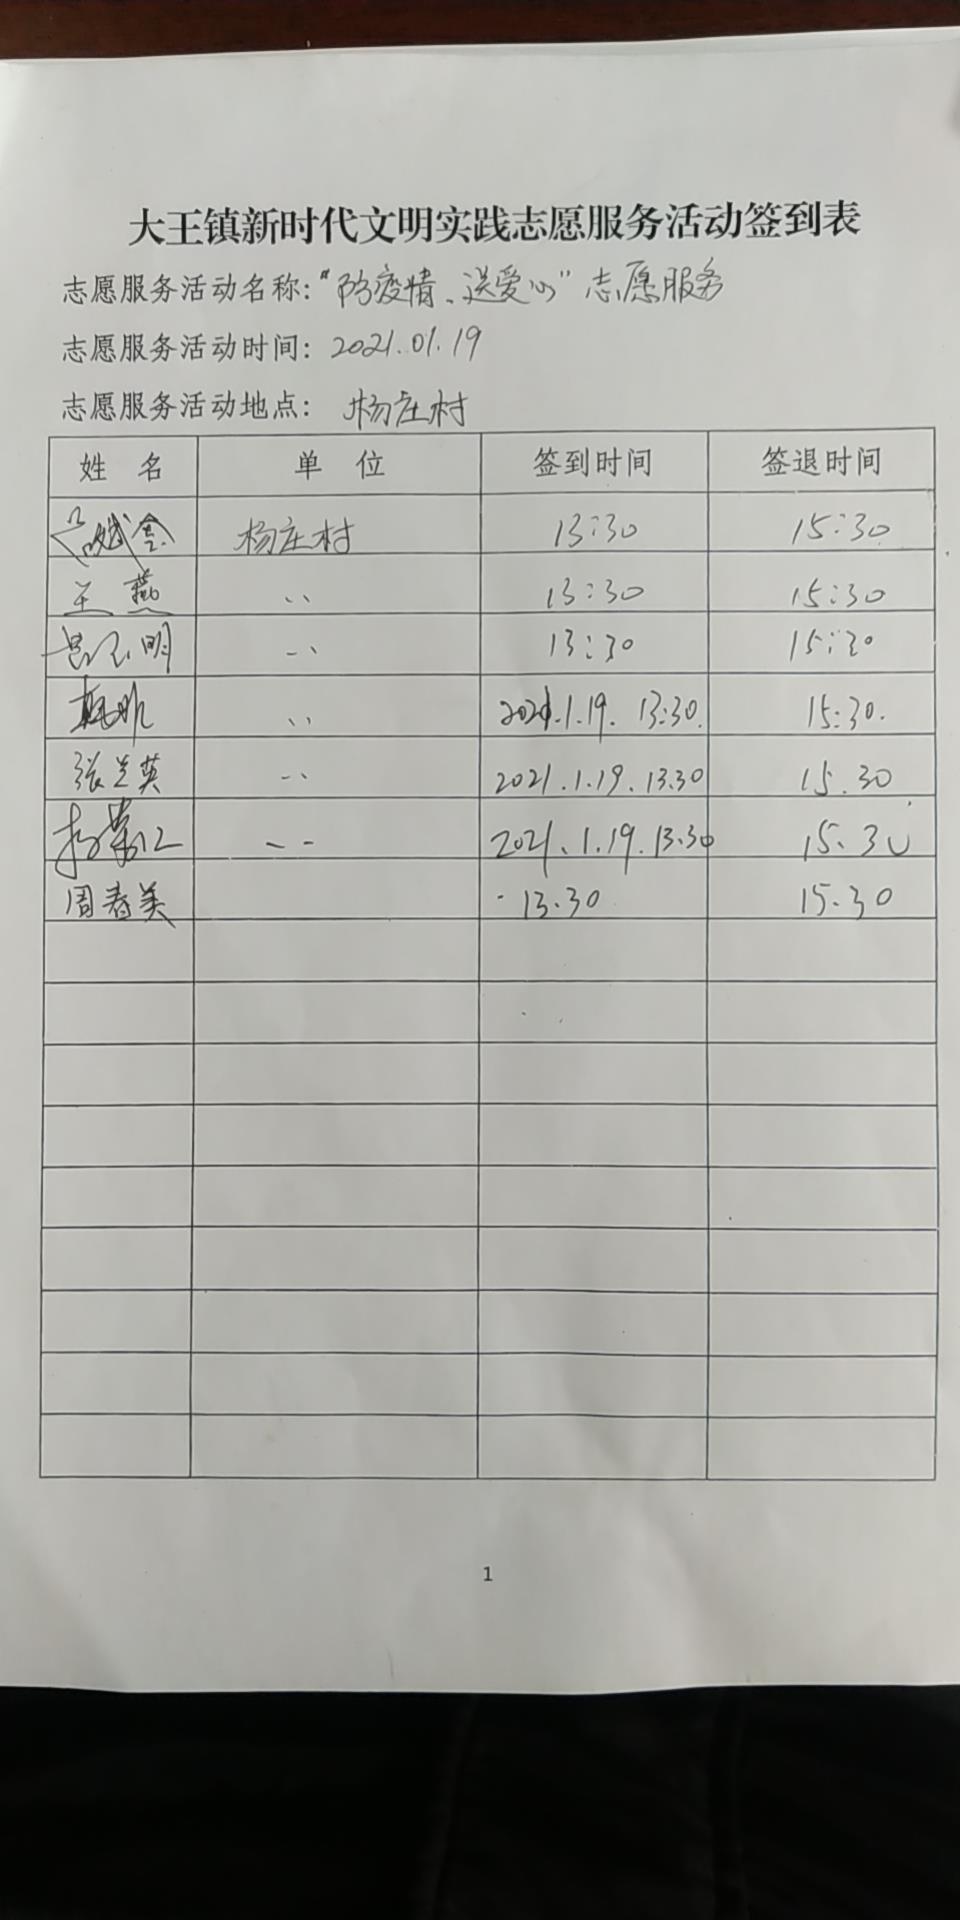 大王镇新时代文明实践志愿服务活动签到表
志愿服务活动名称：“防疫情、送爱心”志愿服务
志愿服务活动时间：2021.01.19
志愿服务活动地点：杨庄村
姓 名 单 位 签到时间 签退时间
杨庄村 13:30 15:30
王燕 、、 13:30 15:30
明 、、 13:30 15:30
、、 2021.1.19. 13:30. 15:30.
张兰英 、、 2021.1.19.13.30 15.30
、、 2021.1.19.13.30 15.30
周春美 13.30 15.30
1